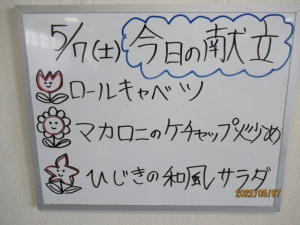 5/7(土) 今日の献立
ロールキャベツ
マカロニのケチャップ炒め
ひじきの和風サラダ
2022/05/07